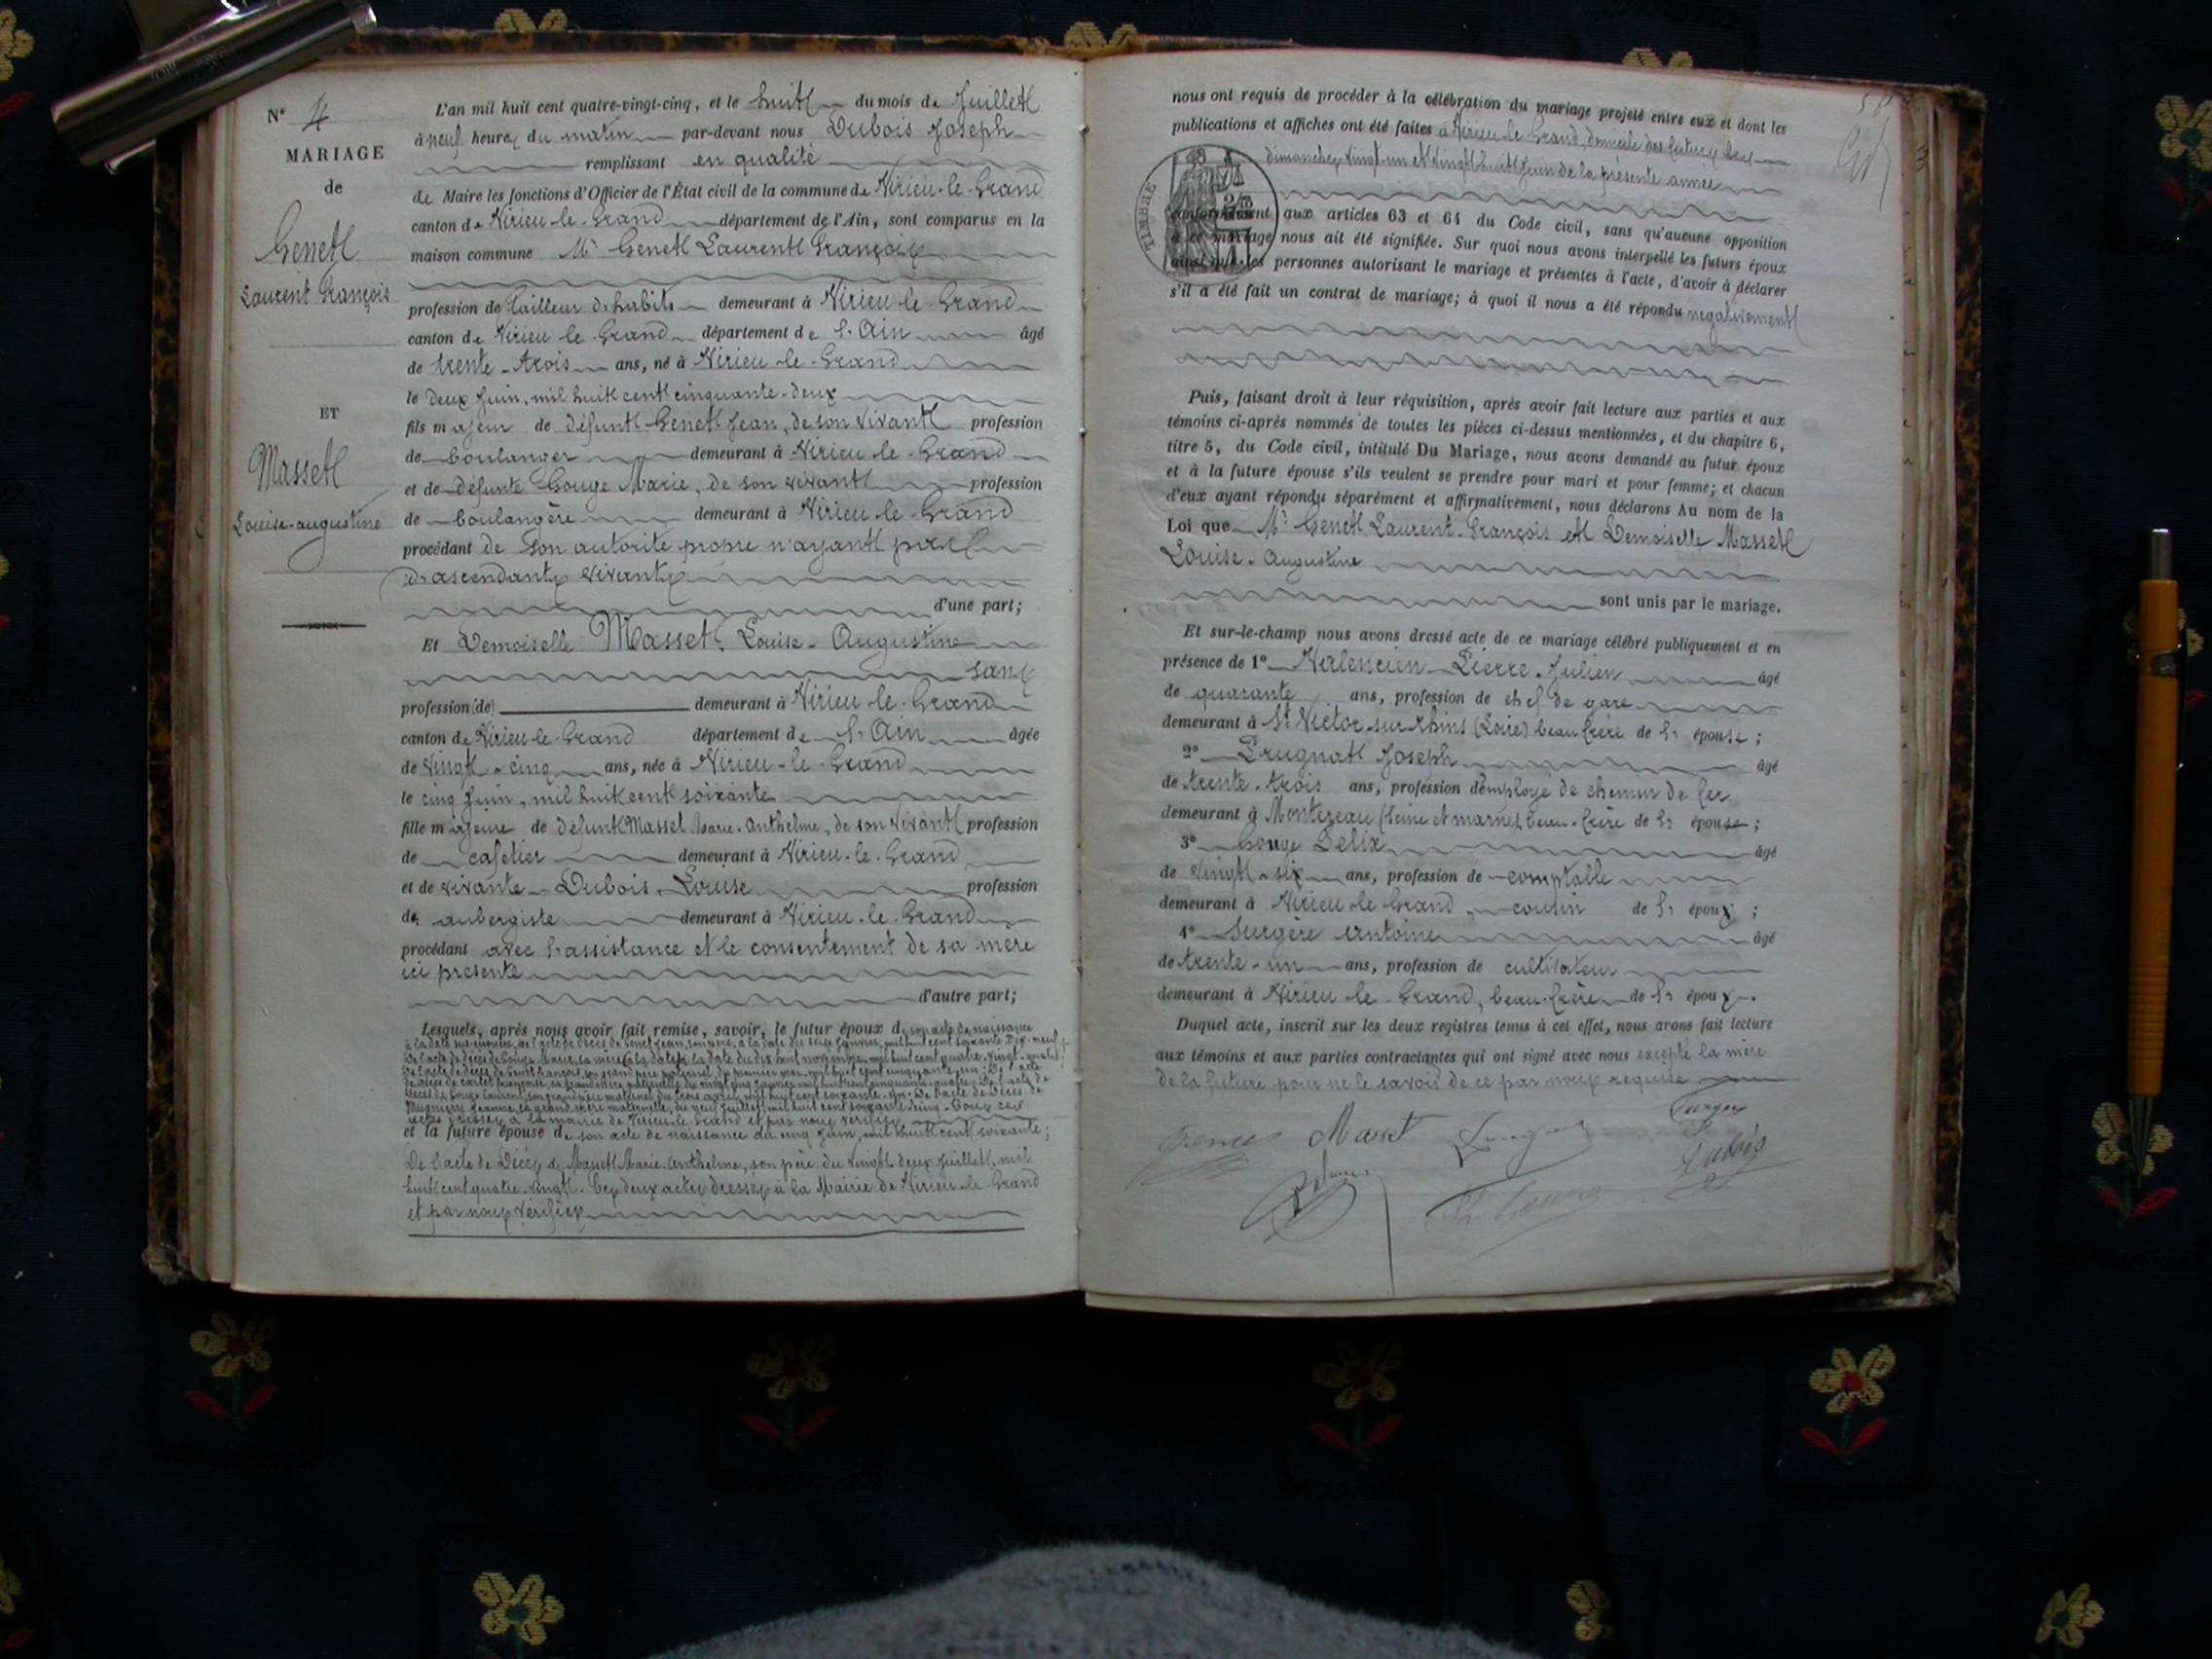 N° 4
MARIAGE
de
Genet
Laurent François
ET
Masset
Louise-augustine
L'an mil huit cent quatre-vingt-cinq, et le huit du mois de Juillet
à neuf heures du matin par-devant nous Dubois Joseph
remplissant en qualité
de Maire les fonctions d'Officier de l'État civil de la commune de Virieu-le-Grand
canton de Virieu-le-Grand département de l'Ain, sont comparus en la
maison commune Mr Genet Laurent François
profession de tailleur d'habits demeurant à Virieu-le-Grand
canton de Virieu le Grand département de l'Ain âgé
de trente-trois ans, né à Virieu-le-Grand
le deux Juin, mil huit cent cinquante-deux
fils majeur de défunt Genet Jean, de son vivant profession
de boulanger demeurant à Virieu le Grand
et de défunte Gouge Marie, de son vivant profession
de boulangère demeurant à Virieu-le-Grand
procédant de son autorité propre n'ayant pas
d'ascendants vivants
d'une part;
Et Demoiselle Masset, Louise-Augustine
sans
profession (de) demeurant à Virieu-le-Grand
canton de Virieu-le-Grand département de l'Ain âgée
de vingt-cinq ans, née à Virieu-le-Grand
le cinq Juin, mil huit cent soixante
fille majeure de défunt Masset Marie-Anthelme, de son vivant profession
de cafetier demeurant à Virieu-le-Grand
et de vivante Dubois, Louise profession
de aubergiste demeurant à Virieu-le-Grand
procédant avec l'assistance et le consentement de sa mère
ici présente
d'autre part;
Lesquels, après nous avoir fait remise, savoir, le futur époux de son acte de naissance
et la future épouse de son acte de naissance du cinq Juin, mil huit cent soixante;
De l'acte de Décès de Masset Marie-Anthelme, son père du vingt deux Juillet, mil
huit cent quatre-vingt. Ces deux actes dressés à la Mairie de Virieu-le-Grand
et par nous vérifiés
nous ont requis de procéder à la célébration du mariage projeté entre eux et dont les
publications et affiches ont été faites à Virieu-le-Grand, domicile des futurs les
dimanches vingt-un et vingt huit Juin de la présente année
TIMBRE
conformément aux articles 63 et 64 du Code civil, sans qu'aucune opposition
à ce mariage nous ait été signifiée. Sur quoi nous avons interpellé les futurs époux
ainsi que les personnes autorisant le mariage et présentes à l'acte, d'avoir à déclarer
s'il a été fait un contrat de mariage; à quoi il nous a été répondu négativement
Puis, faisant droit à leur réquisition, après avoir fait lecture aux parties et aux
témoins ci-après nommés de toutes les pièces ci-dessus mentionnées, et du chapitre 6,
titre 5, du Code civil, intitulé Du Mariage, nous avons demandé au futur époux
et à la future épouse s'ils veulent se prendre pour mari et pour femme; et chacun
d'eux ayant répondu séparément et affirmativement, nous déclarons Au nom de la
Loi que Mr Genet Laurent-François et Demoiselle Masset
Louise-Augustine
sont unis par le mariage.
Et sur-le-champ nous avons dressé acte de ce mariage célébré publiquement et en
présence de 1° Valencien Pierre-Julien âgé
de quarante ans, profession de chef de gare
demeurant à St Victor sur Rhins (Loire) beau frère de l' épouse;
2° Prugnat Joseph âgé
de trente-trois ans, profession d'employé de chemin de fer
demeurant à Montereau (Seine et marne), beau-frère de l' épouse;
3° Gouge Félix âgé
de vingt-six ans, profession de comptable
demeurant à Virieu-le-Grand cousin de l' époux;
4° Surgère Antoine âgé
de trente-un ans, profession de cultivateur
demeurant à Virieu-le-Grand, beau-frère de l' époux.
Duquel acte, inscrit sur les deux registres tenus à cet effet, nous avons fait lecture
aux témoins et aux parties contractantes qui ont signé avec nous excepté la mère
de la future pour ne le savoir de ce par nous requise
Masset
Dubois